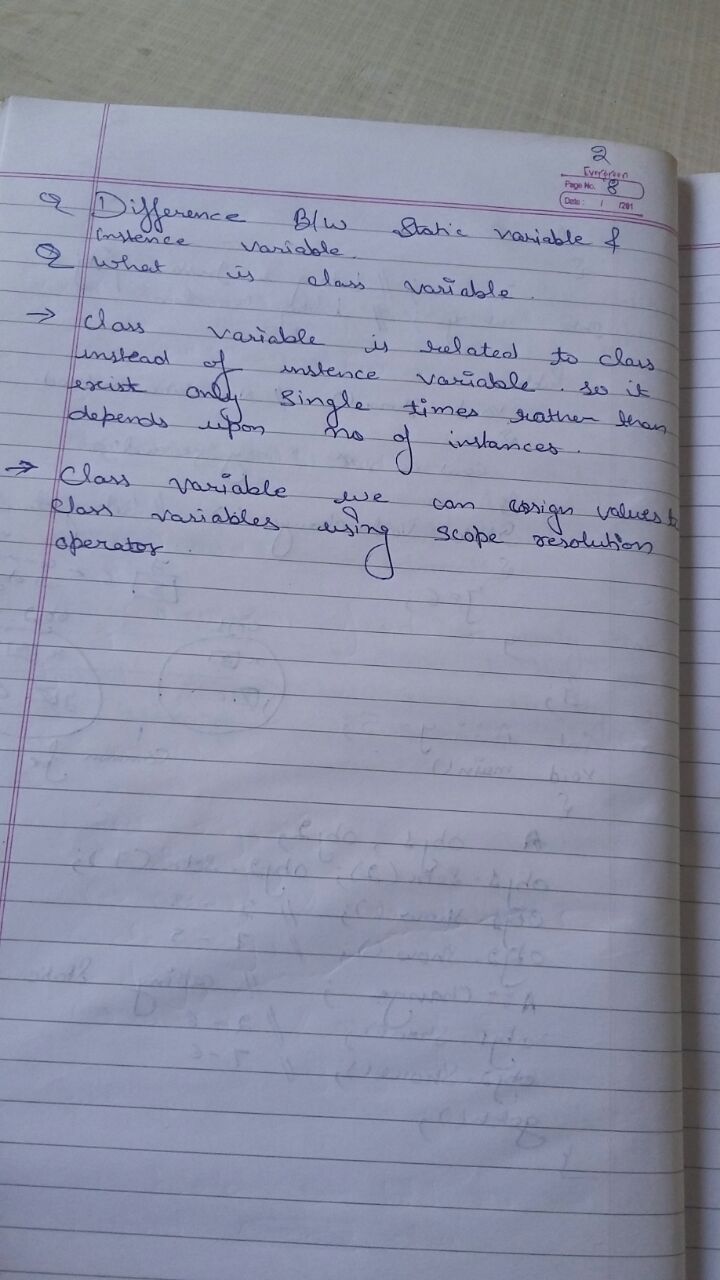 2
Evergreen
Page No. 8
Date: / /201
Q Difference B/w Static variable &
instence variable.
Q What is class variable.
→ class variable is related to class
instead of instence variable. so it
exist only single times rather than
depends upon no of instances.
→ Class variable we can assign values to
class variables using scope resolution
operator.